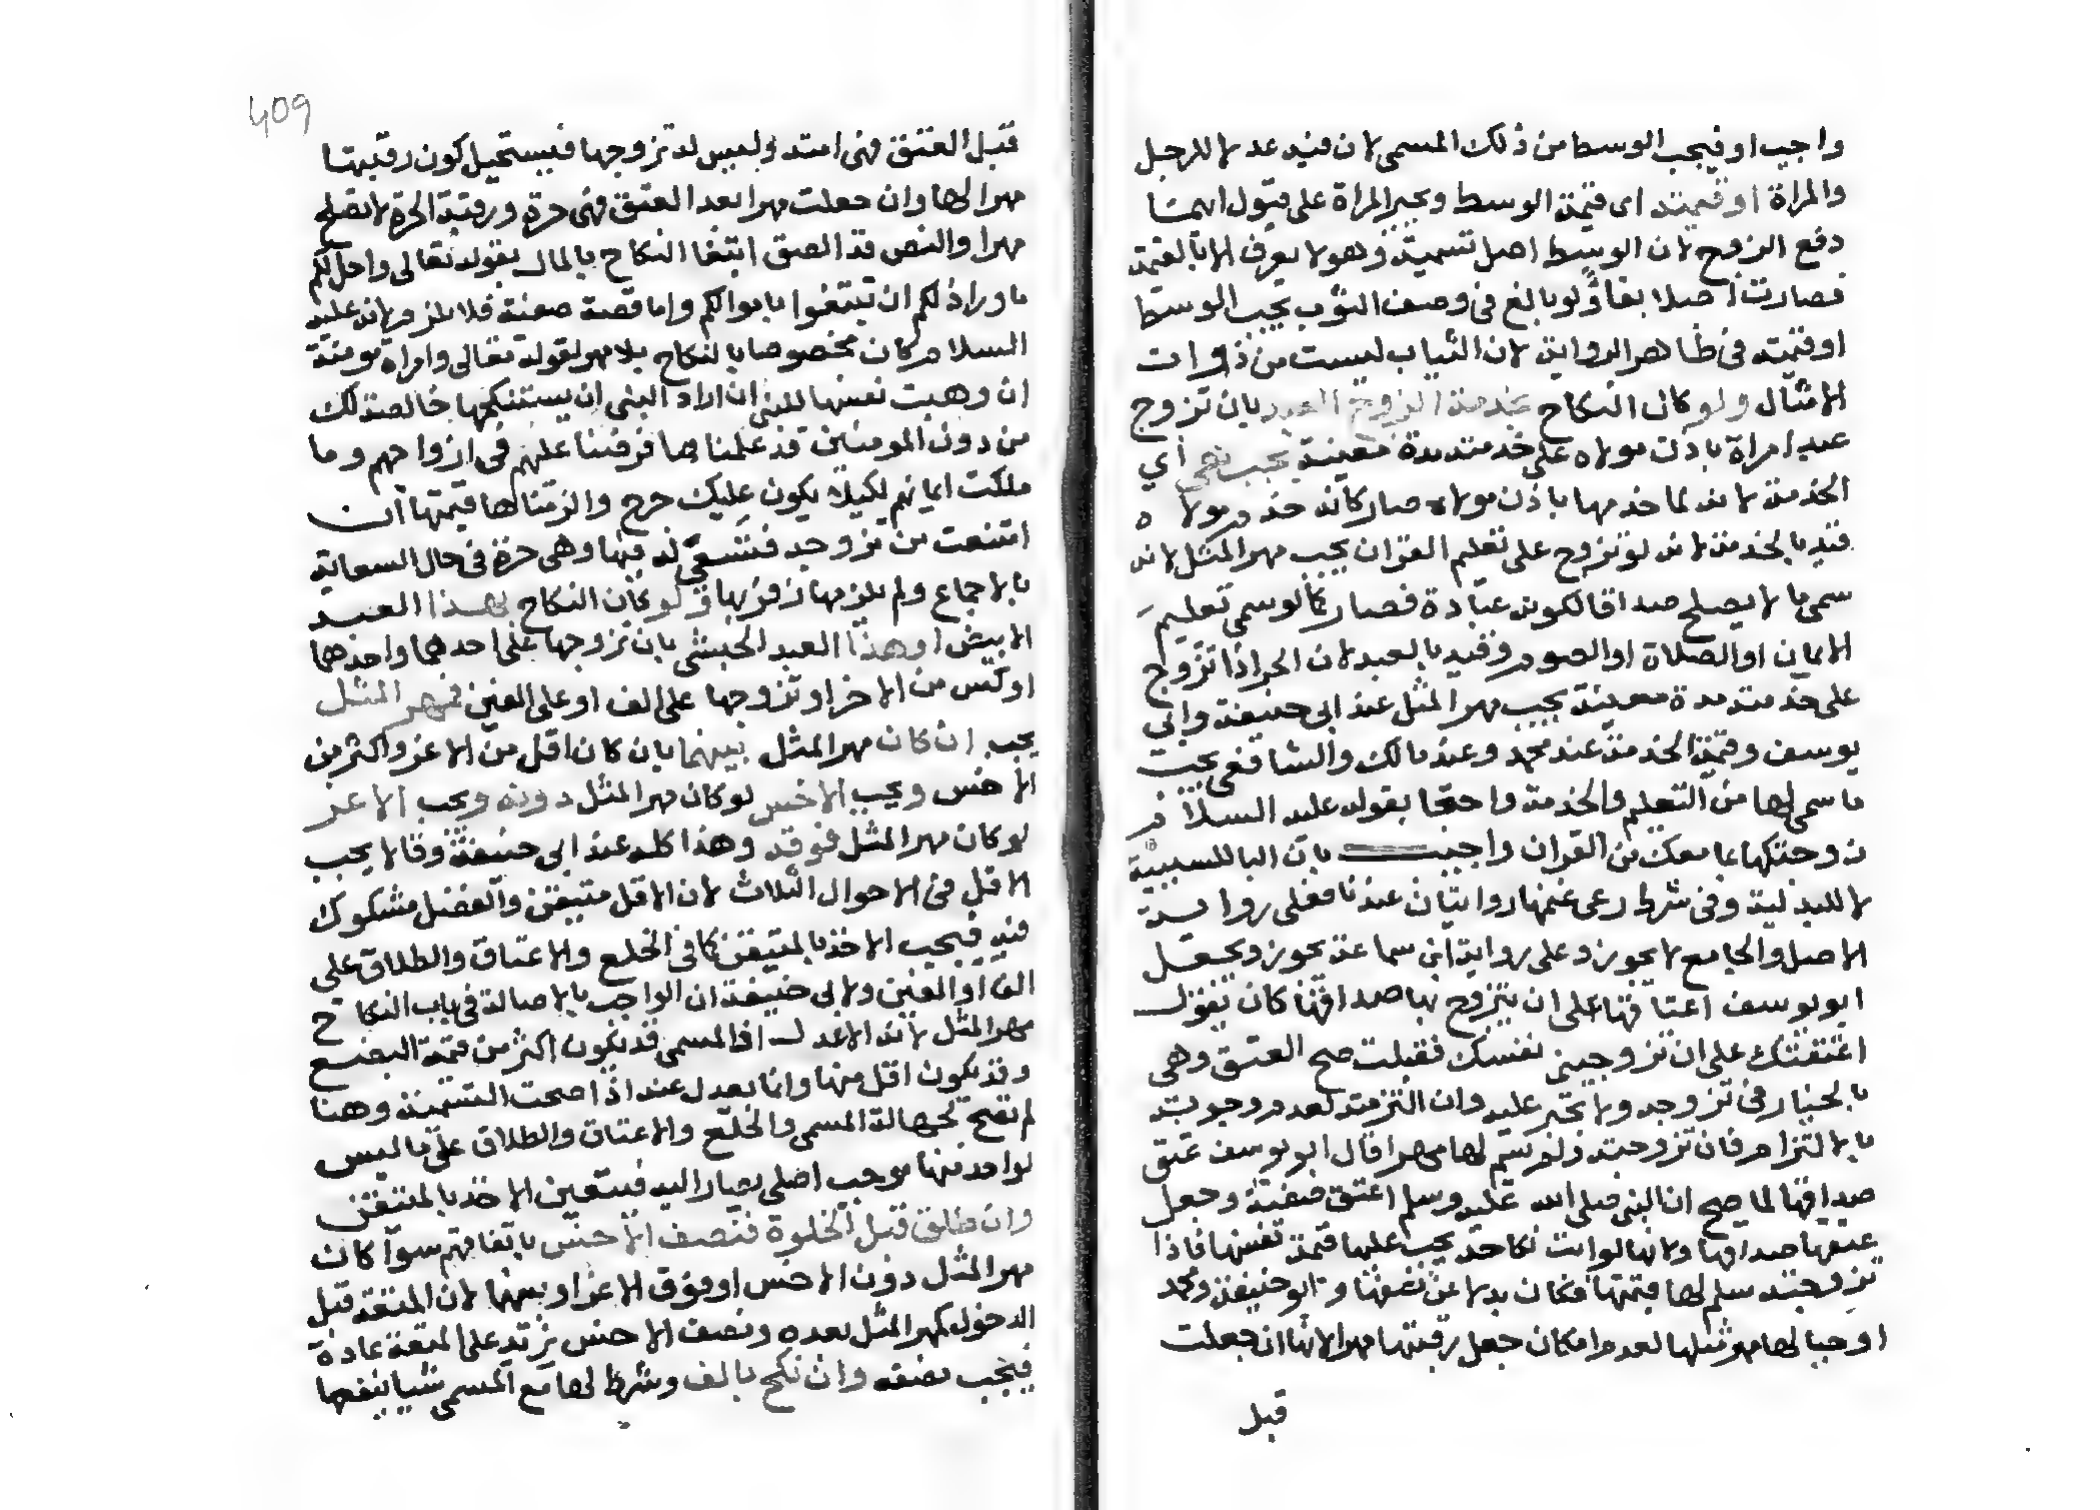 واجب او فيجب الوسط من ذلك المسمى لان فيه عدلا للرجل
والمراة او قيمته اى قيمة الوسط ويجبر المراة على قبول ايهما
دفع الزوج لان الوسط اصل تسمية وهو لا يعرف الا بالقيمة
فصارت اصلا بقاء ولو بالغ فى وصف الثوب يجب الوسط
او قيمته فى ظاهر الرواية لان الثياب ليست من ذوات
الامثال ولو كان النكاح بخدمة الزوج العبد بان تزوج
عبد امراة باذن مولاه على خدمته مدة معينة يجب هى اي
الخدمة لانه لما خدمها باذن مولاه صار كانه خدم مولاه
قيد بالخدمة لانه لو تزوج على تعليم القران يجب مهر المثل لانه
سمى ما لا يصلح صداقا لكونه عبادة فصار كما لو سمى تعليم
الايمان او الصلاة او الصوم وقيد بالعبد لان الحر اذا تزوج
على خدمته مدة معينة يجب مهر المثل عند ابى حنيفة وابي
يوسف وقيمة الخدمة عند محمد وعند مالك والشافعى يجب
ما سمى لها من التعليم والخدمة واحتجا بقوله عليه السلام
زوجتكها بما معك من القران واجيب بان البا للسببية
لا للبدلية وفى شرط رعى غنمها روايتان عندنا فعلى رواية
الاصل والجامع لا يجوز وعلى رواية ابن سماعة يجوز ويجعل
ابو يوسف اعتاقها على ان يتزوج بها صداقها كان يقول
اعتقتك على ان تزوجينى نفسك فقبلت صح العتق وهى
بالخيار فى تزوجه ولا تجبر عليه وان التزمته لعدم وجوبه
بالالتزام فان تزوجته ولم يسم لها مهرا قال ابو يوسف عتق
صداقها لما صح ان النبى صلى الله عليه وسلم اعتق صفية وجعل
عتقها صداقها ولانها لو ابت نكاحه يجب عليها قيمة نفسها فاذا
تزوجته سلم لها قيمتها فكان بدلا عن بضعها وابو حنيفة ومحمد
اوجبا لها مهر مثلها لعدم امكان جعل رقبتها مهرا لانها ان جعلت
قبل
409
قبل العتق فهى امته وليس له تزوجها فيستحيل كون رقبتها
مهرا لها وان جعلت مهرا بعد العتق فهى حرة ورقبة الحرة لا تصلح
مهرا والنص قد الصق ابتغا النكاح بالمال بقوله تعالى واحل لكم
ما وراذلكم ان تبتغوا باموالكم واما قصة صفية فلا يلزم لانه عليه
السلام كان مخصوصا بالنكاح بلا مهر لقوله تعالى وامراة مومنة
ان وهبت نفسها للنبى ان اراد النبى ان يستنكحها خالصة لك
من دون المومنين قد علمنا ما فرضنا عليهم فى ازواجهم وما
ملكت ايمانهم لكيلا يكون عليك حرج والزمناها قيمتها ان
امتنعت من تزوجه فتسعى له فيها وهى حرة فى حال السعاية
بالاجماع ولم يلزمها زفر بها ولو كان النكاح بهذا العبد
الابيض او هذا العبد الحبشى بان تزوجها على احدهما واحدهما
اوكس من الاخر او تزوجها على الف او على الفين فمهر المثل
يجب ان كان مهر المثل بينهما بان كان اقل من الاعز واكثر من
الاخس ويجب الاخس لو كان مهر المثل دونه ويجب الاعز
لو كان مهر المثل فوقه وهذا كله عند ابى حنيفة وقالا يجب
الاقل فى الاحوال الثلاث لان الاقل متيقن والفضل مشكوك
فيه فيجب الاخذ بالمتيقن كما فى الخلع والاعتاق والطلاق على
الف او الفين ولابى حنيفة ان الواجب بالاصالة فى باب النكاح
مهر المثل لانه الاعدل اذ المسمى قد يكون اكثر من قيمة البضع
وقد يكون اقل منها وانما يعدل عنه اذا صحت التسمية وهنا
لم تصح لجهالة المسمى والخلع والاعتاق والطلاق على مال ليس
لواحد منها موجب اصلى يصار اليه فيتعين الاخذ بالمتيقن
وان طلق قبل الخلوة فنصف الاخس باتفاقهم سوا كان
مهر المثل دون الاخس او فوق الاعز او بينهما لان المتعة قبل
الدخول كمهر المثل بعده ونصف الاخس يزيد على المتعة عادة
فيجب نصفه وان نكح بالف وشرط لها مع المسمى شيا ينفعها